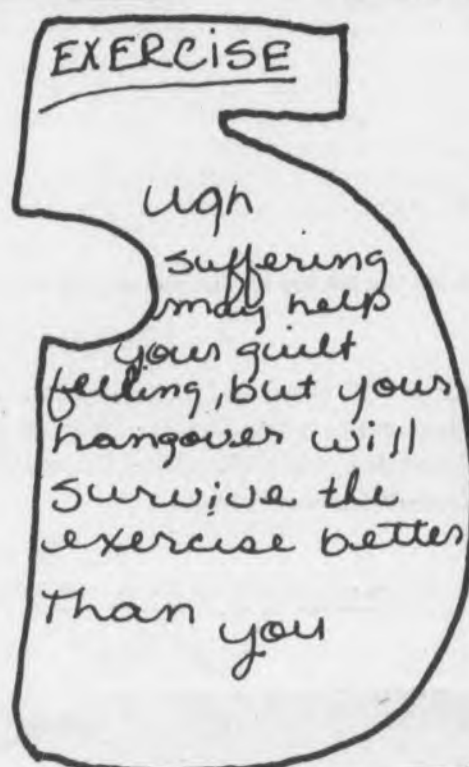 EXERCISE
Ugh
suffering
may help
your guilt
felling, but your
hangover will
survive the
exercise better
than you